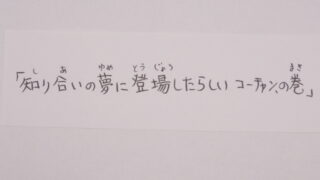 「知り合いの夢に登場したらしい コーチャン、の巻」